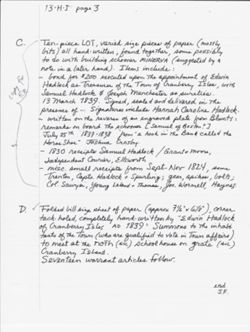 13-H-I page 3
C. Ten-piece LOT, varied size pieces of paper (mostly
bits) all hand written, found together, some possibly
to do with building schooner MINERVA (suggested by a
note in a later hand). Items include:
- bond for $200 executed upon the appointment of Edwin
Hadlock as Treasurer of the Town of Cranberry Isles, with
Samuel Hadlock & Joseph Manchester as sureties.
13 March 1839. Signed, sealed and delivered in the
presence of - Signatures include Hannah Caroline Hadlock.
- written on the reverse of an engraved plate from Blunt's:
remarks on board the schooner
July 25th 1837-1838 from "a rock in the Sound called the
Horse Stan" Joshua
- 1830 receipts Samuel Hadlock / Grant & Moore,
Independent Courier, Ellsworth
- misc. small receipts from Sept-Nov 1824, some
Trenton, Capts Hadlock & Spurling; gem, spikes, bolts,
Col Sawyer, Young & Thomas, Jos. Wormell, Haynes
D. Folded blue sheet of paper (approx 7½" x 6½"), corner
tack holed, completely hand-written by "Edwin Hadlock
of Cranberry Isles No 1839" Summons to the inhabi-
tants of the Town (who are qualified to vote in Town affairs)
to meet at the North (sic) School house on grate (sic)
Cranberry Island.
Seventeen warrant articles follow.